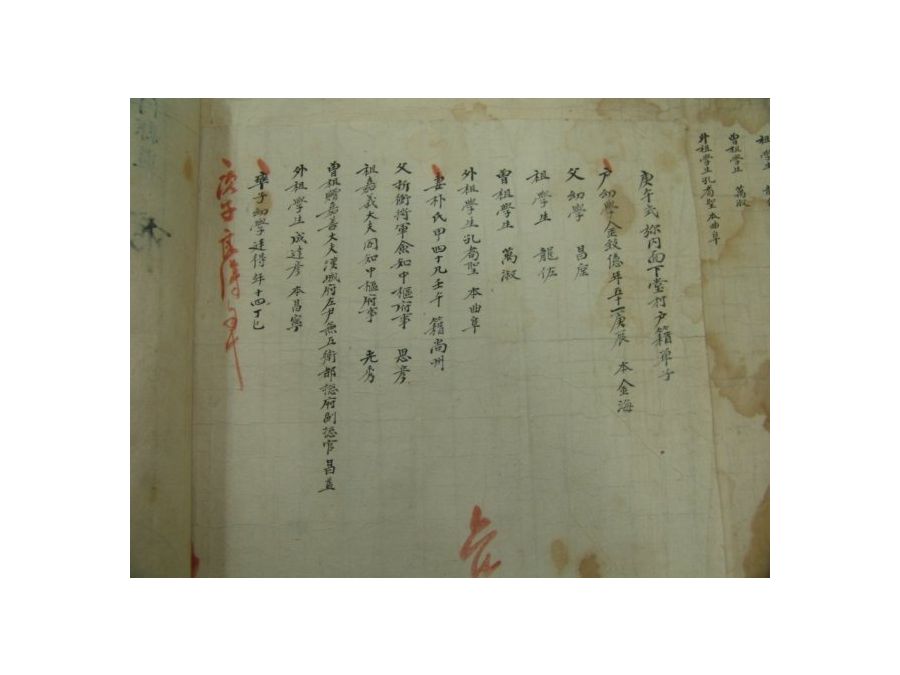 祖學生
曾祖學生 萬淑
外祖學生孔胤聖 本曲阜
庚午式 弥内面下堂村戶籍單子
戶幼學金鼓億年五十一庚辰 本金海
父幼學 昌宦
祖學生 龍佐
曾祖學生 萬淑
外祖學生孔胤聖 本曲阜
妻朴氏年四十九壬午 籍尚州
父折衝將軍僉知中樞府事 思彥
祖嘉義大夫同知中樞府事 光秀
曾祖贈嘉善大夫漢城府左尹兼五衛都摠府副摠官昌益
外祖學生成達彥 本昌寧
率子幼學達得年十四丁巳